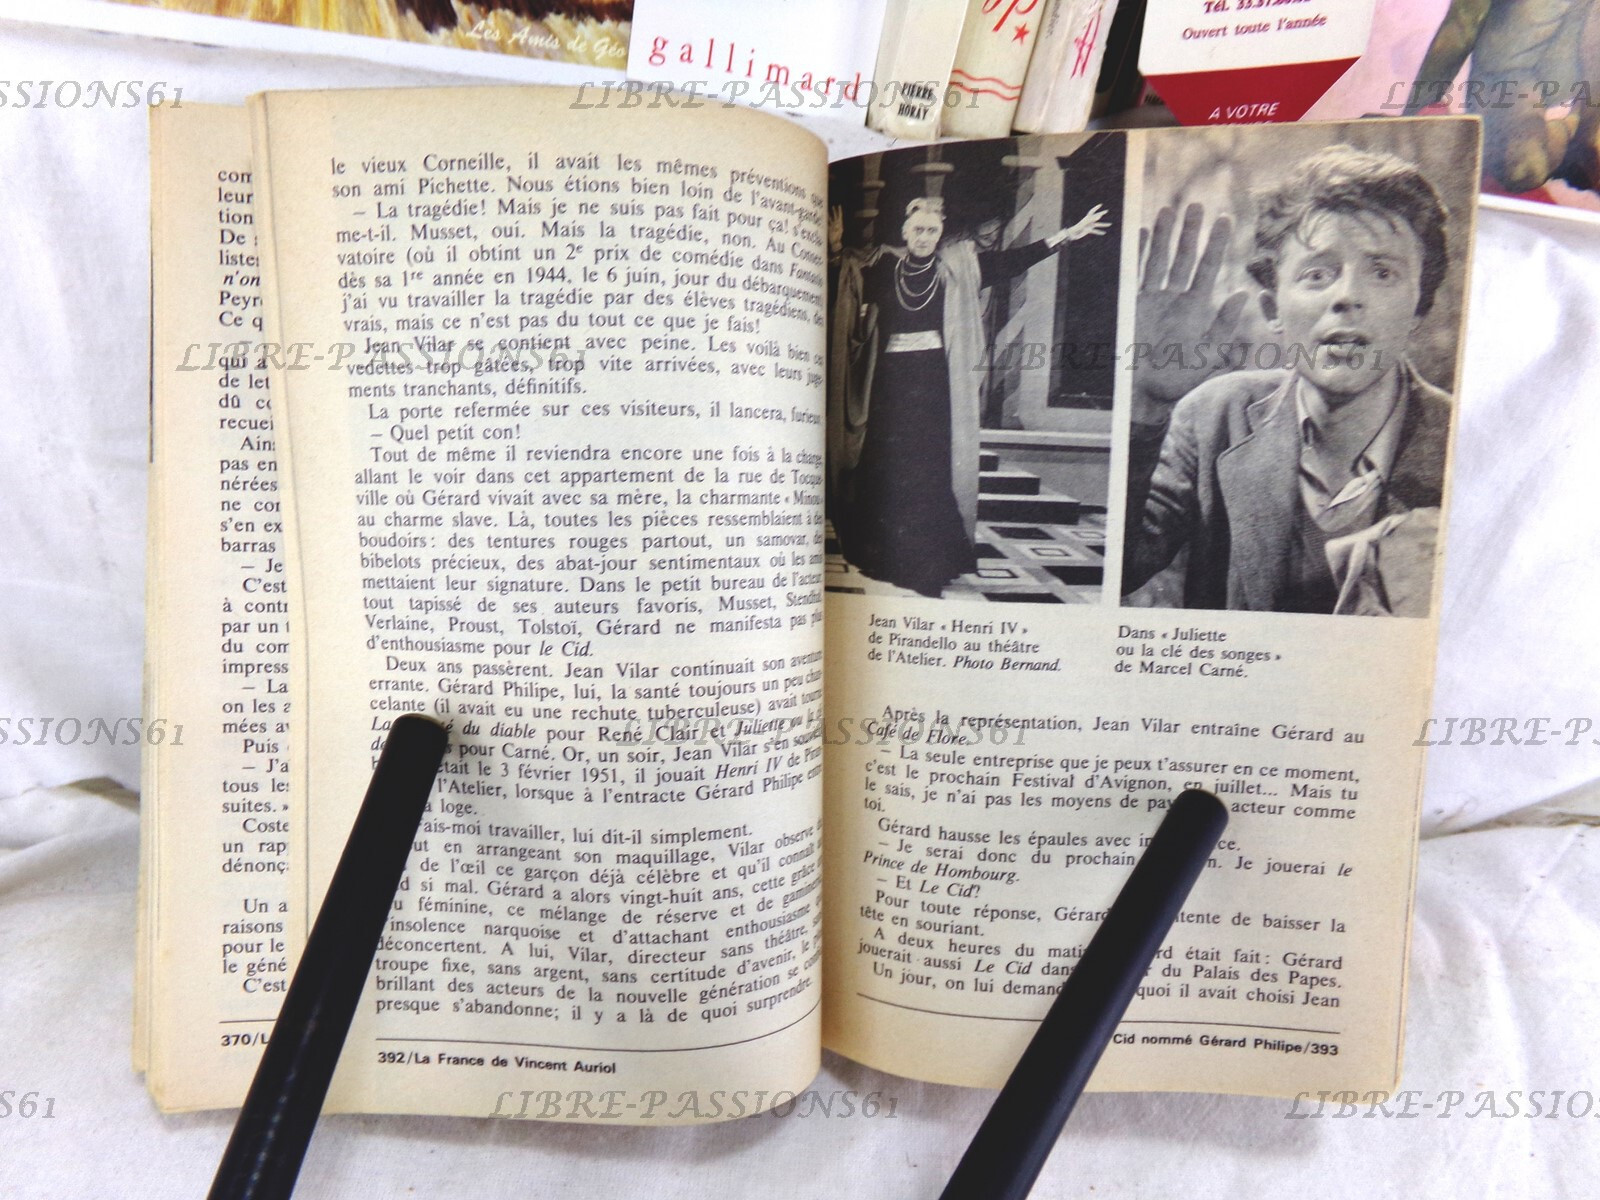 Les Amis de Géo
gallimard
PIERRE
HORAY
Tél.
Ouvert toute l'année
A VOTRE
LIBRE-PASSIONS61
com
leur
tion
De
liste
n'on
Peyr
Ce q
qui a
de let
dû co
recuei
Ain
pas en
nérées
ne con
s'en ex
barras
– Je
C'est
à contr
par un
du com
impress
– La
on les a
mées av
Puis
– J'a
tous les
suites. »
Coste
un rap
dénonç
Un a
raisons
pour le
le géné
C'est
370/L
le vieux Corneille, il avait les mêmes préventions que
son ami Pichette. Nous étions bien loin de l'avant-garde.
– La tragédie! Mais je ne suis pas fait pour ça! s'excla-
me-t-il. Musset, oui. Mais la tragédie, non. Au Conser-
vatoire (où il obtint un 2e prix de comédie dans Fantasio
dès sa 1re année en 1944, le 6 juin, jour du débarquement)
j'ai vu travailler la tragédie par des élèves tragédiens, des
vrais, mais ce n'est pas du tout ce que je fais!
Jean Vilar se contient avec peine. Les voilà bien ces
vedettes trop gâtées, trop vite arrivées, avec leurs juge-
ments tranchants, définitifs.
La porte refermée sur ces visiteurs, il lancera, furieux
– Quel petit con!
Tout de même il reviendra encore une fois à la charge,
allant le voir dans cet appartement de la rue de Tocque-
ville où Gérard vivait avec sa mère, la charmante « Minou »
au charme slave. Là, toutes les pièces ressemblaient à des
boudoirs: des tentures rouges partout, un samovar, des
bibelots précieux, des abat-jour sentimentaux où les amis
mettaient leur signature. Dans le petit bureau de l'acteur,
tout tapissé de ses auteurs favoris, Musset, Stendhal,
Verlaine, Proust, Tolstoï, Gérard ne manifesta pas plus
d'enthousiasme pour le Cid.
Deux ans passèrent. Jean Vilar continuait son aventure
errante. Gérard Philipe, lui, la santé toujours un peu chan-
celante (il avait eu une rechute tuberculeuse) avait tourné
La du diable pour René Clair et Juliette ou la clé
de pour Carné. Or, un soir, Jean Vilar s'en souvient
était le 3 février 1951, il jouait Henri IV de Piran
l'Atelier, lorsque à l'entracte Gérard Philipe entra
loge.
ais-moi travailler, lui dit-il simplement.
ut en arrangeant son maquillage, Vilar observe du
de l'œil ce garçon déjà célèbre et qu'il connaît
d si mal. Gérard a alors vingt-huit ans, cette grâce
u féminine, ce mélange de réserve et de gaminerie
insolence narquoise et d'attachant enthousiasme qui
déconcertent. A lui, Vilar, directeur sans théâtre, sans
troupe fixe, sans argent, sans certitude d'avenir, le plus
brillant des acteurs de la nouvelle génération se confie,
presque s'abandonne; il y a là de quoi surprendre.
392/La France de Vincent Auriol
Jean Vilar « Henri IV »
de Pirandello au théâtre
de l'Atelier. Photo Bernand.
Dans « Juliette
ou la clé des songes »
de Marcel Carné.
Après la représentation, Jean Vilar entraîne Gérard au
Café de Flore.
– La seule entreprise que je peux t'assurer en ce moment,
c'est le prochain Festival d'Avignon, en juillet... Mais tu
le sais, je n'ai pas les moyens de pay acteur comme
toi.
Gérard hausse les épaules avec in ce.
– Je serai donc du prochain n. Je jouerai le
Prince de Hombourg.
– Et Le Cid?
Pour toute réponse, Gérard tente de baisser la
tête en souriant.
A deux heures du mati rd était fait: Gérard
jouerait aussi Le Cid dans r du Palais des Papes.
Un jour, on lui demand quoi il avait choisi Jean
Cid nommé Gérard Philipe/393